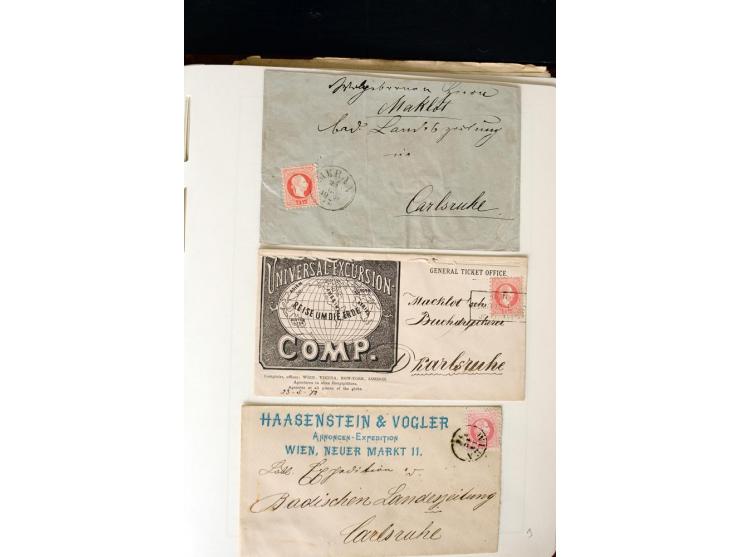 Wohlgeboren Herrn
Maklot
bad Landeszeitung
in
Carlsruhe
MERAN
UNIVERSAL-EXCURSION-
REISE UM DIE ERDE
COMP.
GENERAL TICKET OFFICE.
Macklot'sche
Buchdruckerei
Karlsruhe
Comptoirs, offices: WIEN, VIENNA, NEW-YORK, LONDON.
Agenturen in allen Hauptplätzen.
Agencies at all places of the globe.
HAASENSTEIN & VOGLER
ANNONCEN-EXPEDITION
WIEN, NEUER MARKT 11.
WIEN
Löbl. Expedition d.
Badischen Landeszeitung
Carlsruhe